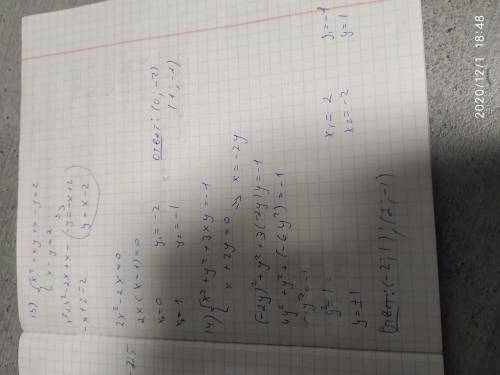 x - y = 2
y = x - 2
- x + 2 = 2
2x² - 2x = 0
2x(x - 1) = 0
x₁ = 0 y₁ = -2
x₂ = 1 y₂ = -1
Ответ: (0; -2)
(1; -1)
14) { x² + y² + 3xy = -1
x + 2y = 0 => x = -2y
(-2y)² + y² + 3(-2y)y = -1
4y² + y² + (-6y²) = -1
-y² = -1
y² = 1
y = ±1
x₁ = 2 y₁ = -1
x₂ = -2 y = 1
Ответ: (-2; 1); (2; -1)
-25
2020/12/1 18:48